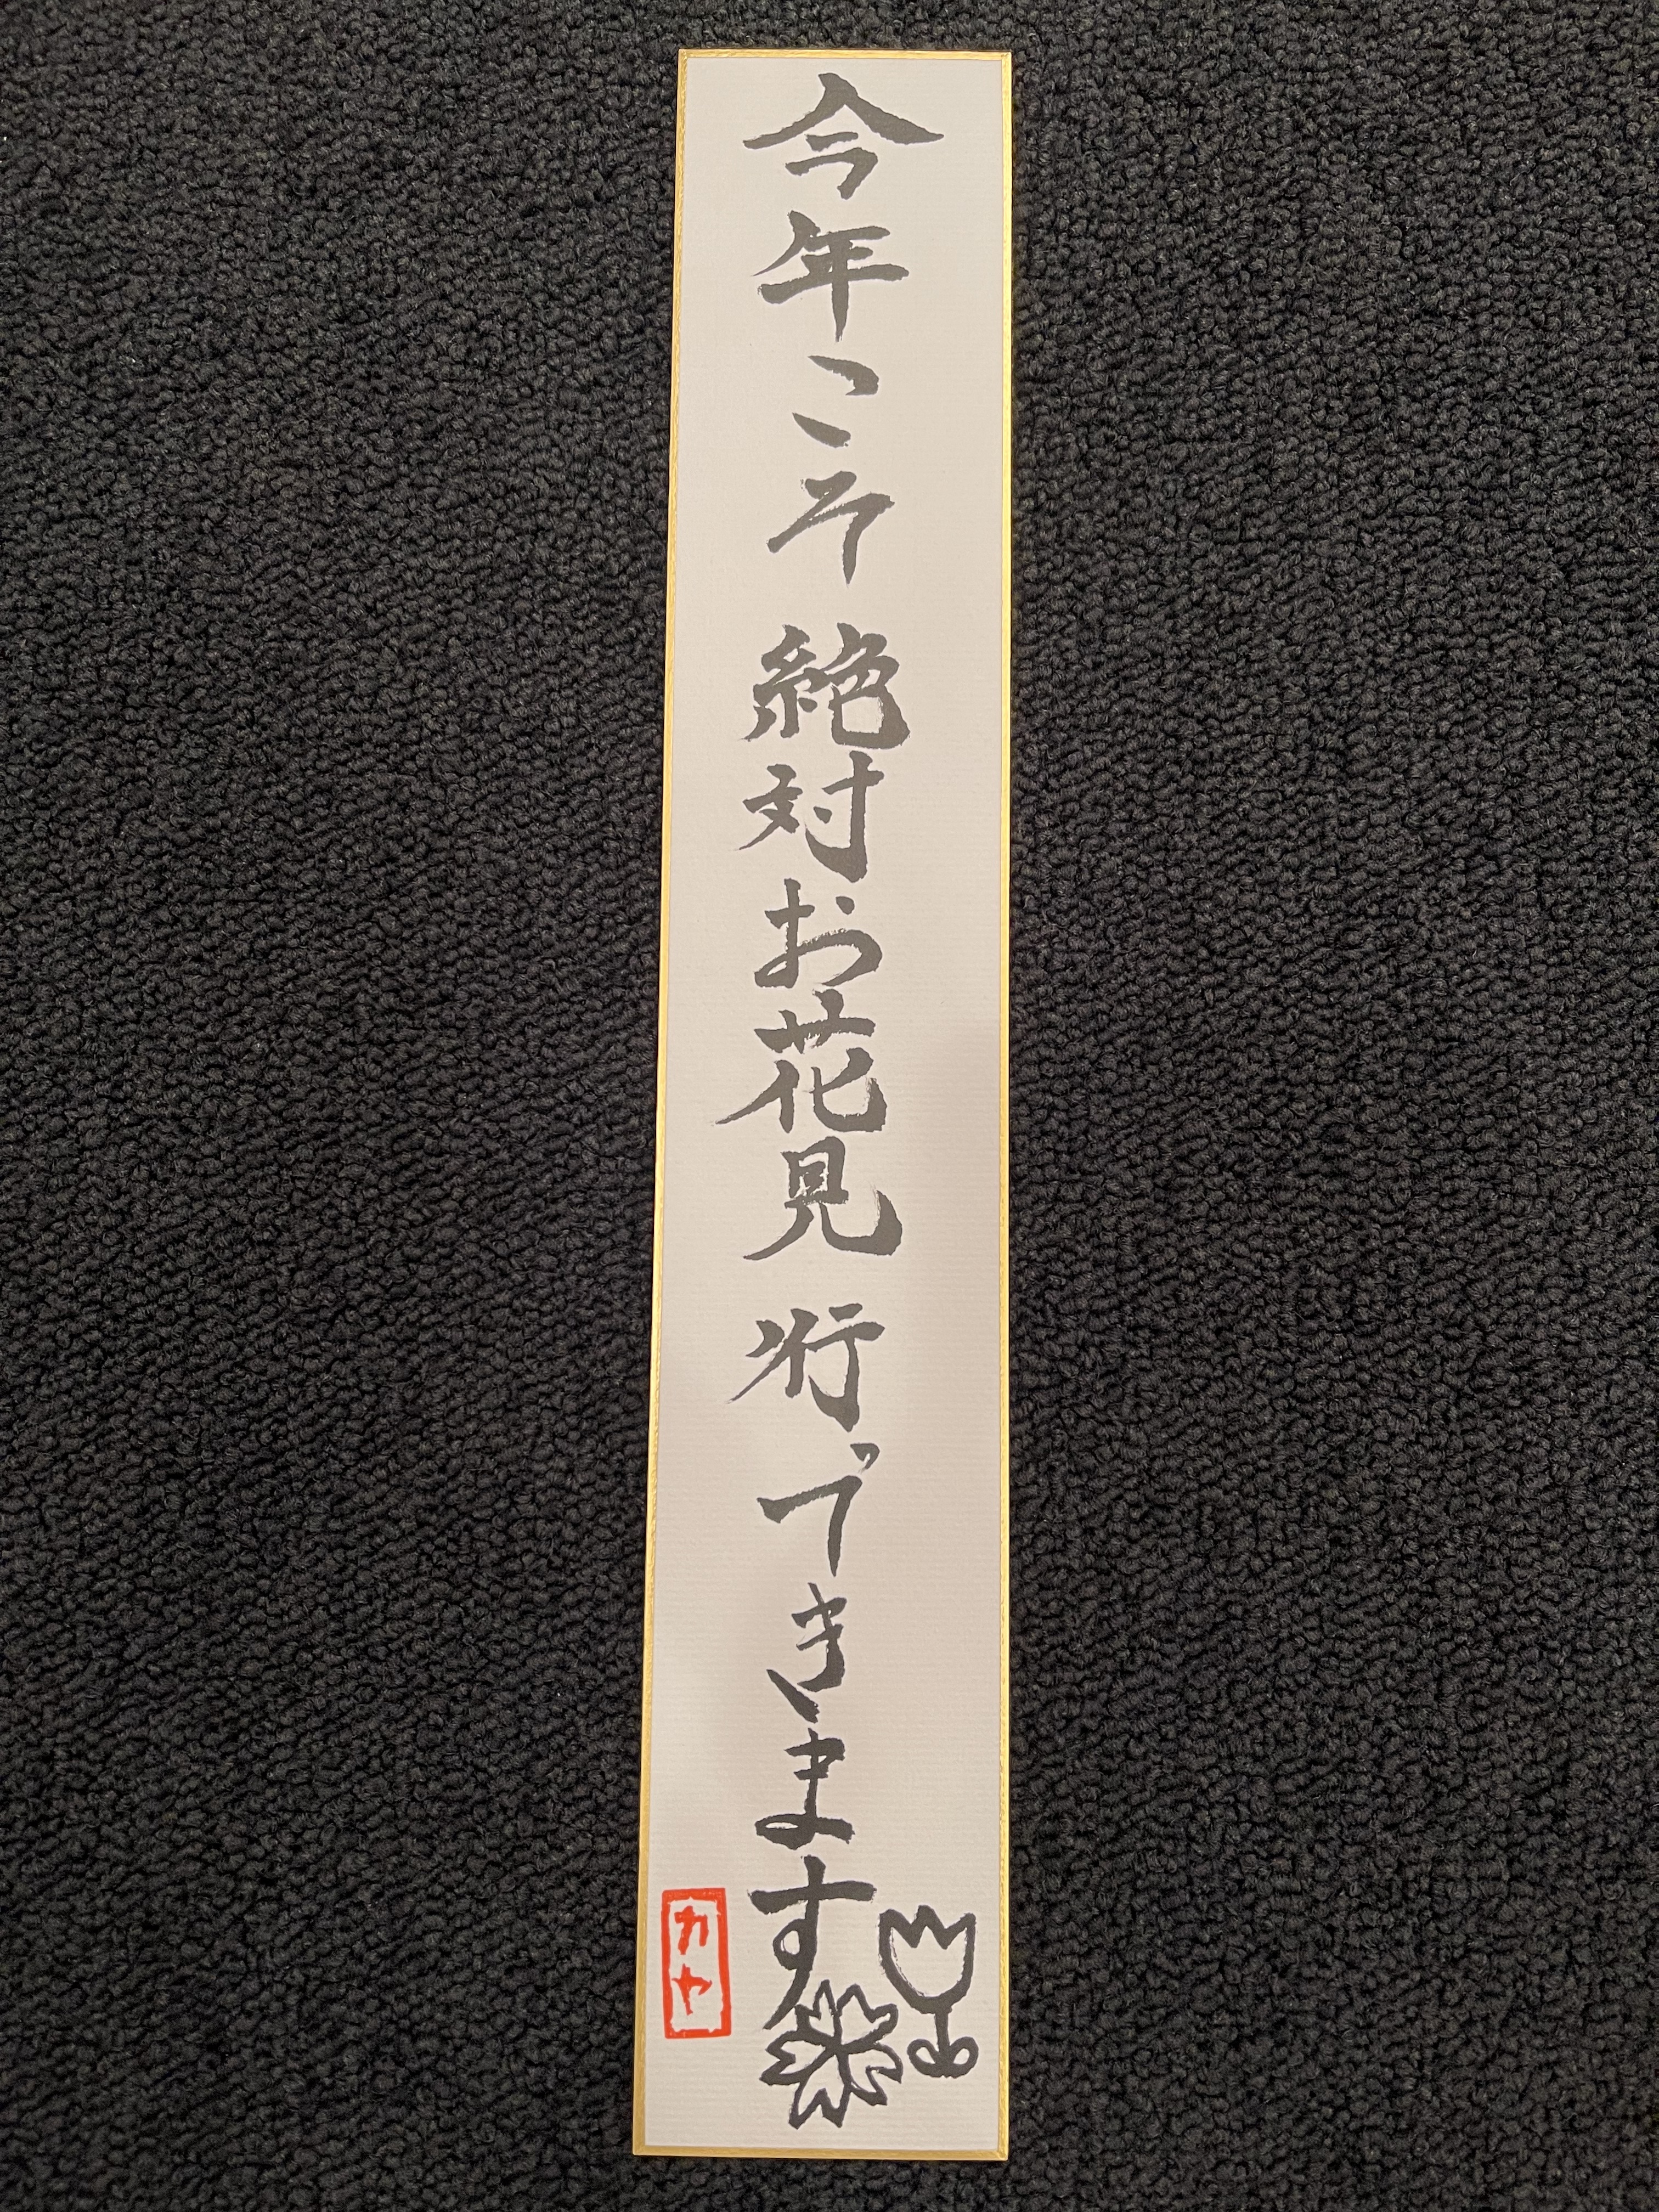 今年こそ絶対お花見行ってきます
カヤ